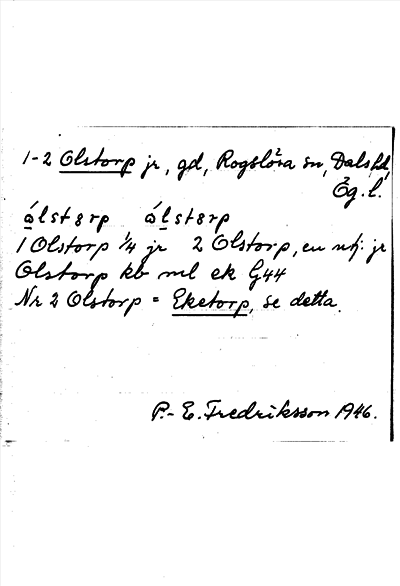 1-2 Olstorp jr, gd, Rogslösa sn, Dals hd,
Ög. l.
ålst8rp ålst8rp
1 Olstorp 1/4 jr 2 Olstorp, en utj. jr
Olstorp kb ml ek G44
Nr 2 Olstorp = Eketorp, se detta.
P.-E. Fredriksson 1946.